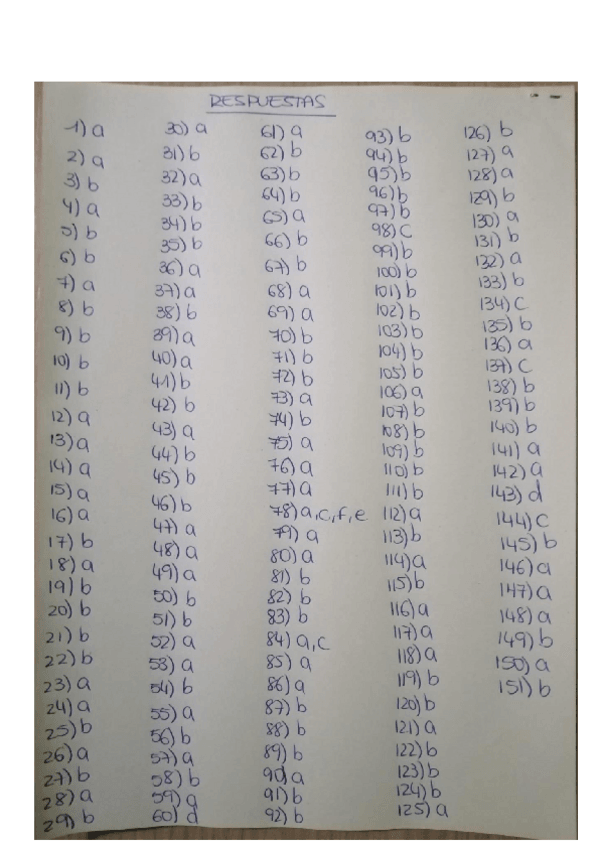 RESPUESTAS
1) a
2) a
3) b
4) a
5) b
6) b
7) a
8) b
9) b
10) b
11) b
12) a
13) a
14) a
15) a
16) a
17) b
18) a
19) b
20) b
21) b
22) b
23) a
24) a
25) b
26) a
27) b
28) a
29) b
30) a
31) b
32) a
33) b
34) b
35) b
36) a
37) a
38) b
39) a
40) a
41) b
42) b
43) a
44) b
45) b
46) b
47) a
48) a
49) a
50) b
51) b
52) a
53) a
54) b
55) a
56) b
57) a
58) b
59) a
60) d
61) a
62) b
63) b
64) b
65) a
66) b
67) b
68) a
69) a
70) b
71) b
72) b
73) a
74) b
75) a
76) a
77) a
78) a, c, f, e
79) a
80) a
81) b
82) b
83) b
84) a, c
85) a
86) a
87) b
88) b
89) b
90) a
91) b
92) b
93) b
94) b
95) b
96) b
97) b
98) c
99) b
100) b
101) b
102) b
103) b
104) b
105) b
106) a
107) b
108) b
109) b
110) b
111) b
112) a
113) b
114) a
115) b
116) a
117) a
118) a
119) b
120) b
121) a
122) b
123) b
124) b
125) a
126) b
127) a
128) a
129) b
130) a
131) b
132) a
133) b
134) c
135) b
136) a
137) c
138) b
139) b
140) b
141) a
142) a
143) d
144) c
145) b
146) a
147) a
148) a
149) b
150) a
151) b